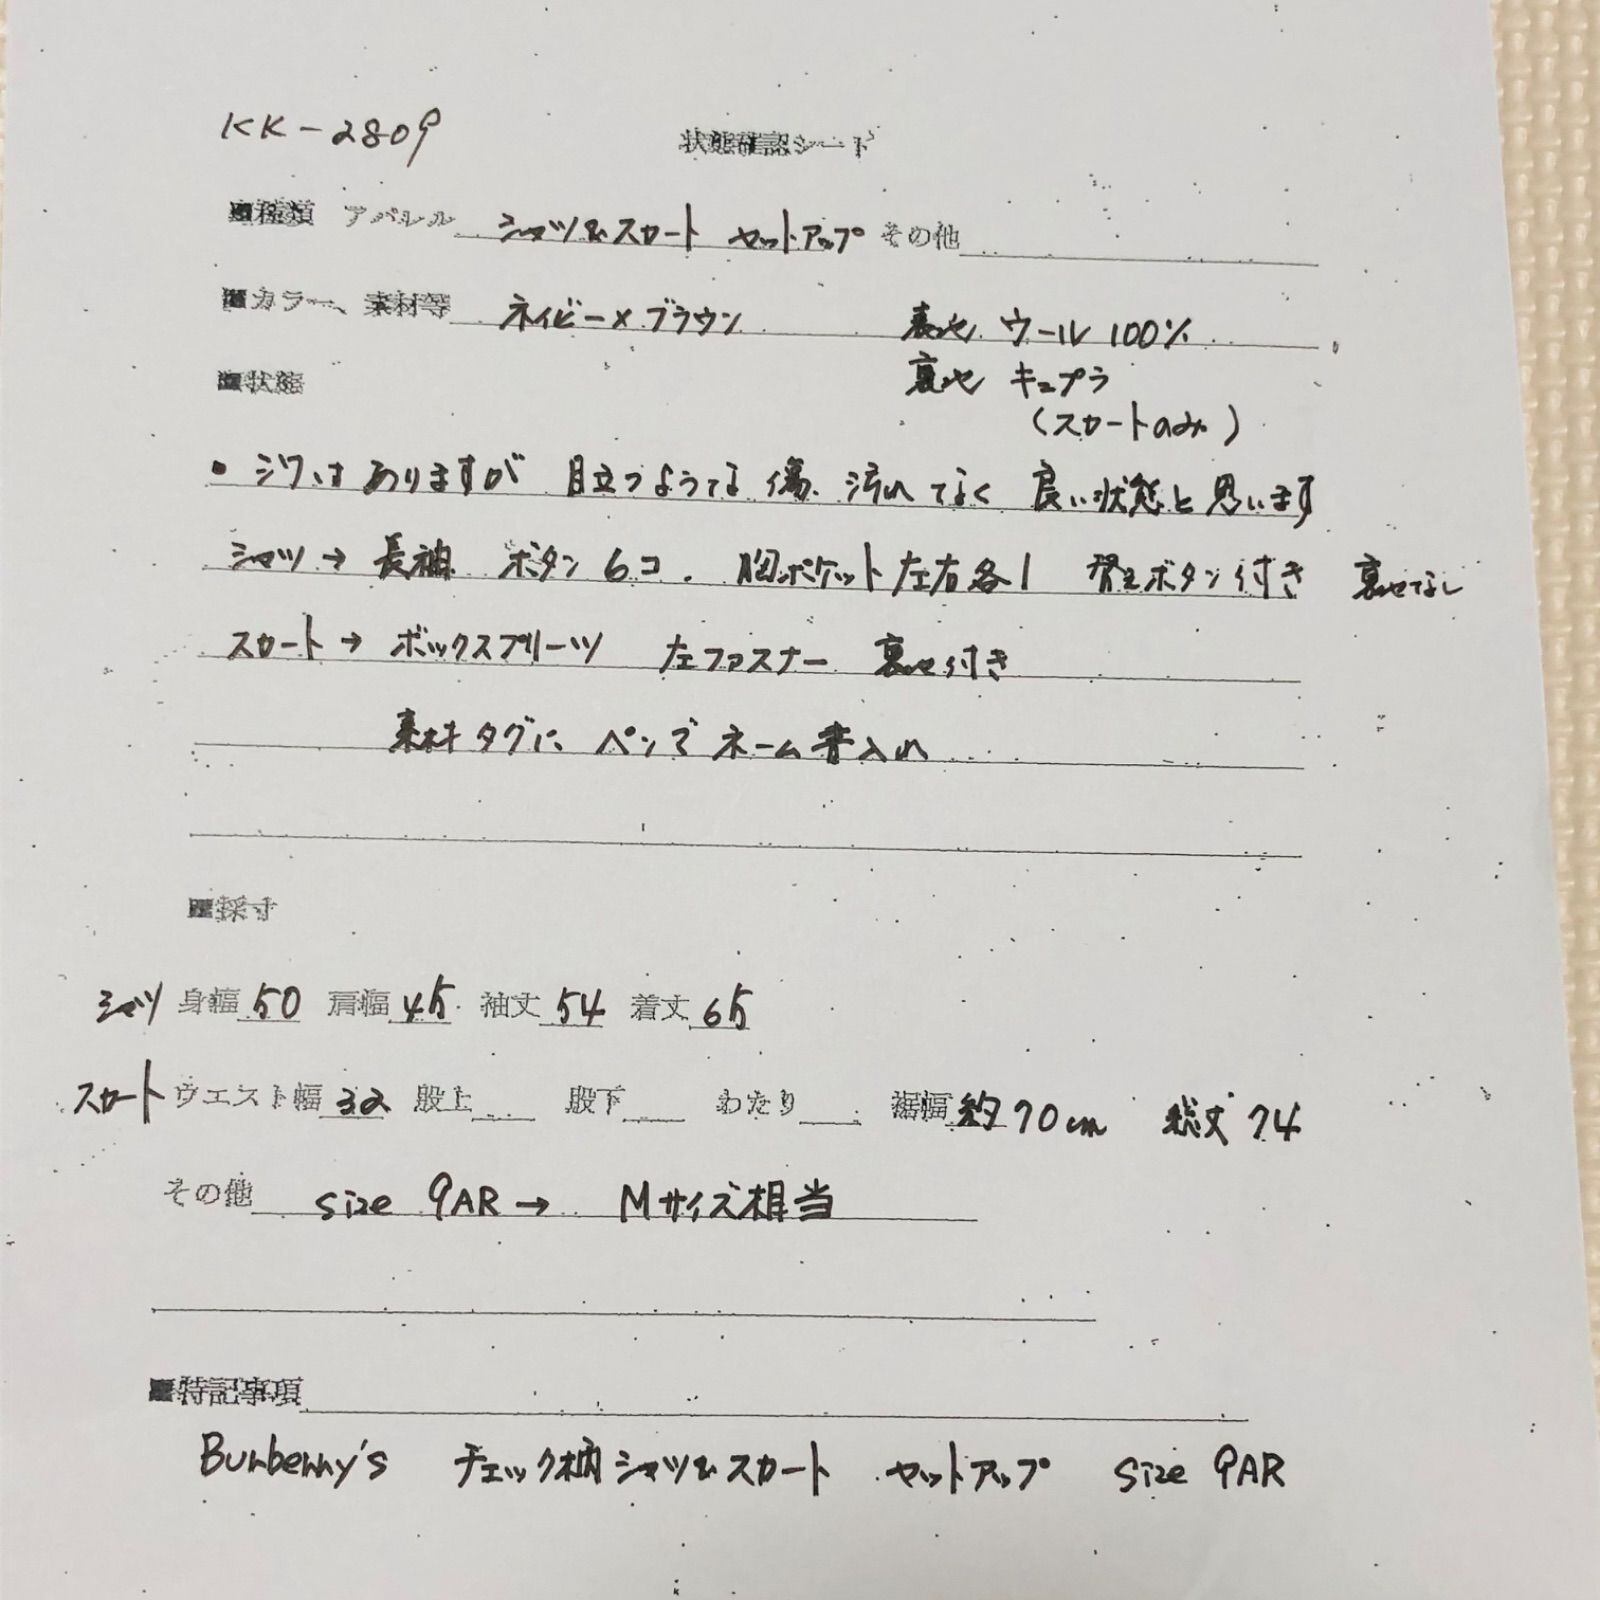 KK-2809
状態確認シート
■種類 アパレル シャツ&スカート セットアップ その他
■カラー、素材等 ネイビー×ブラウン 表地 ウール100%
裏地 キュプラ
■状態
(スカートのみ)
・シワはありますが 目立つような傷、汚れでなく 良い状態と思います
シャツ→長袖 ボタン6コ. 胸ポケット左右各1 替えボタン付き 裏地なし
スカート→ボックスプリーツ 左ファスナー 裏地付き
素材タグに ペンでネーム書入れ
■採寸
シャツ 身幅50 肩幅45 袖丈54 着丈65
スカート ウエスト幅32 股上 股下 わたり 裾幅約70cm 総丈74
その他 size 9AR→ Mサイズ相当
■特記事項
Burberry's チェック柄シャツ&スカート セットアップ size 9AR